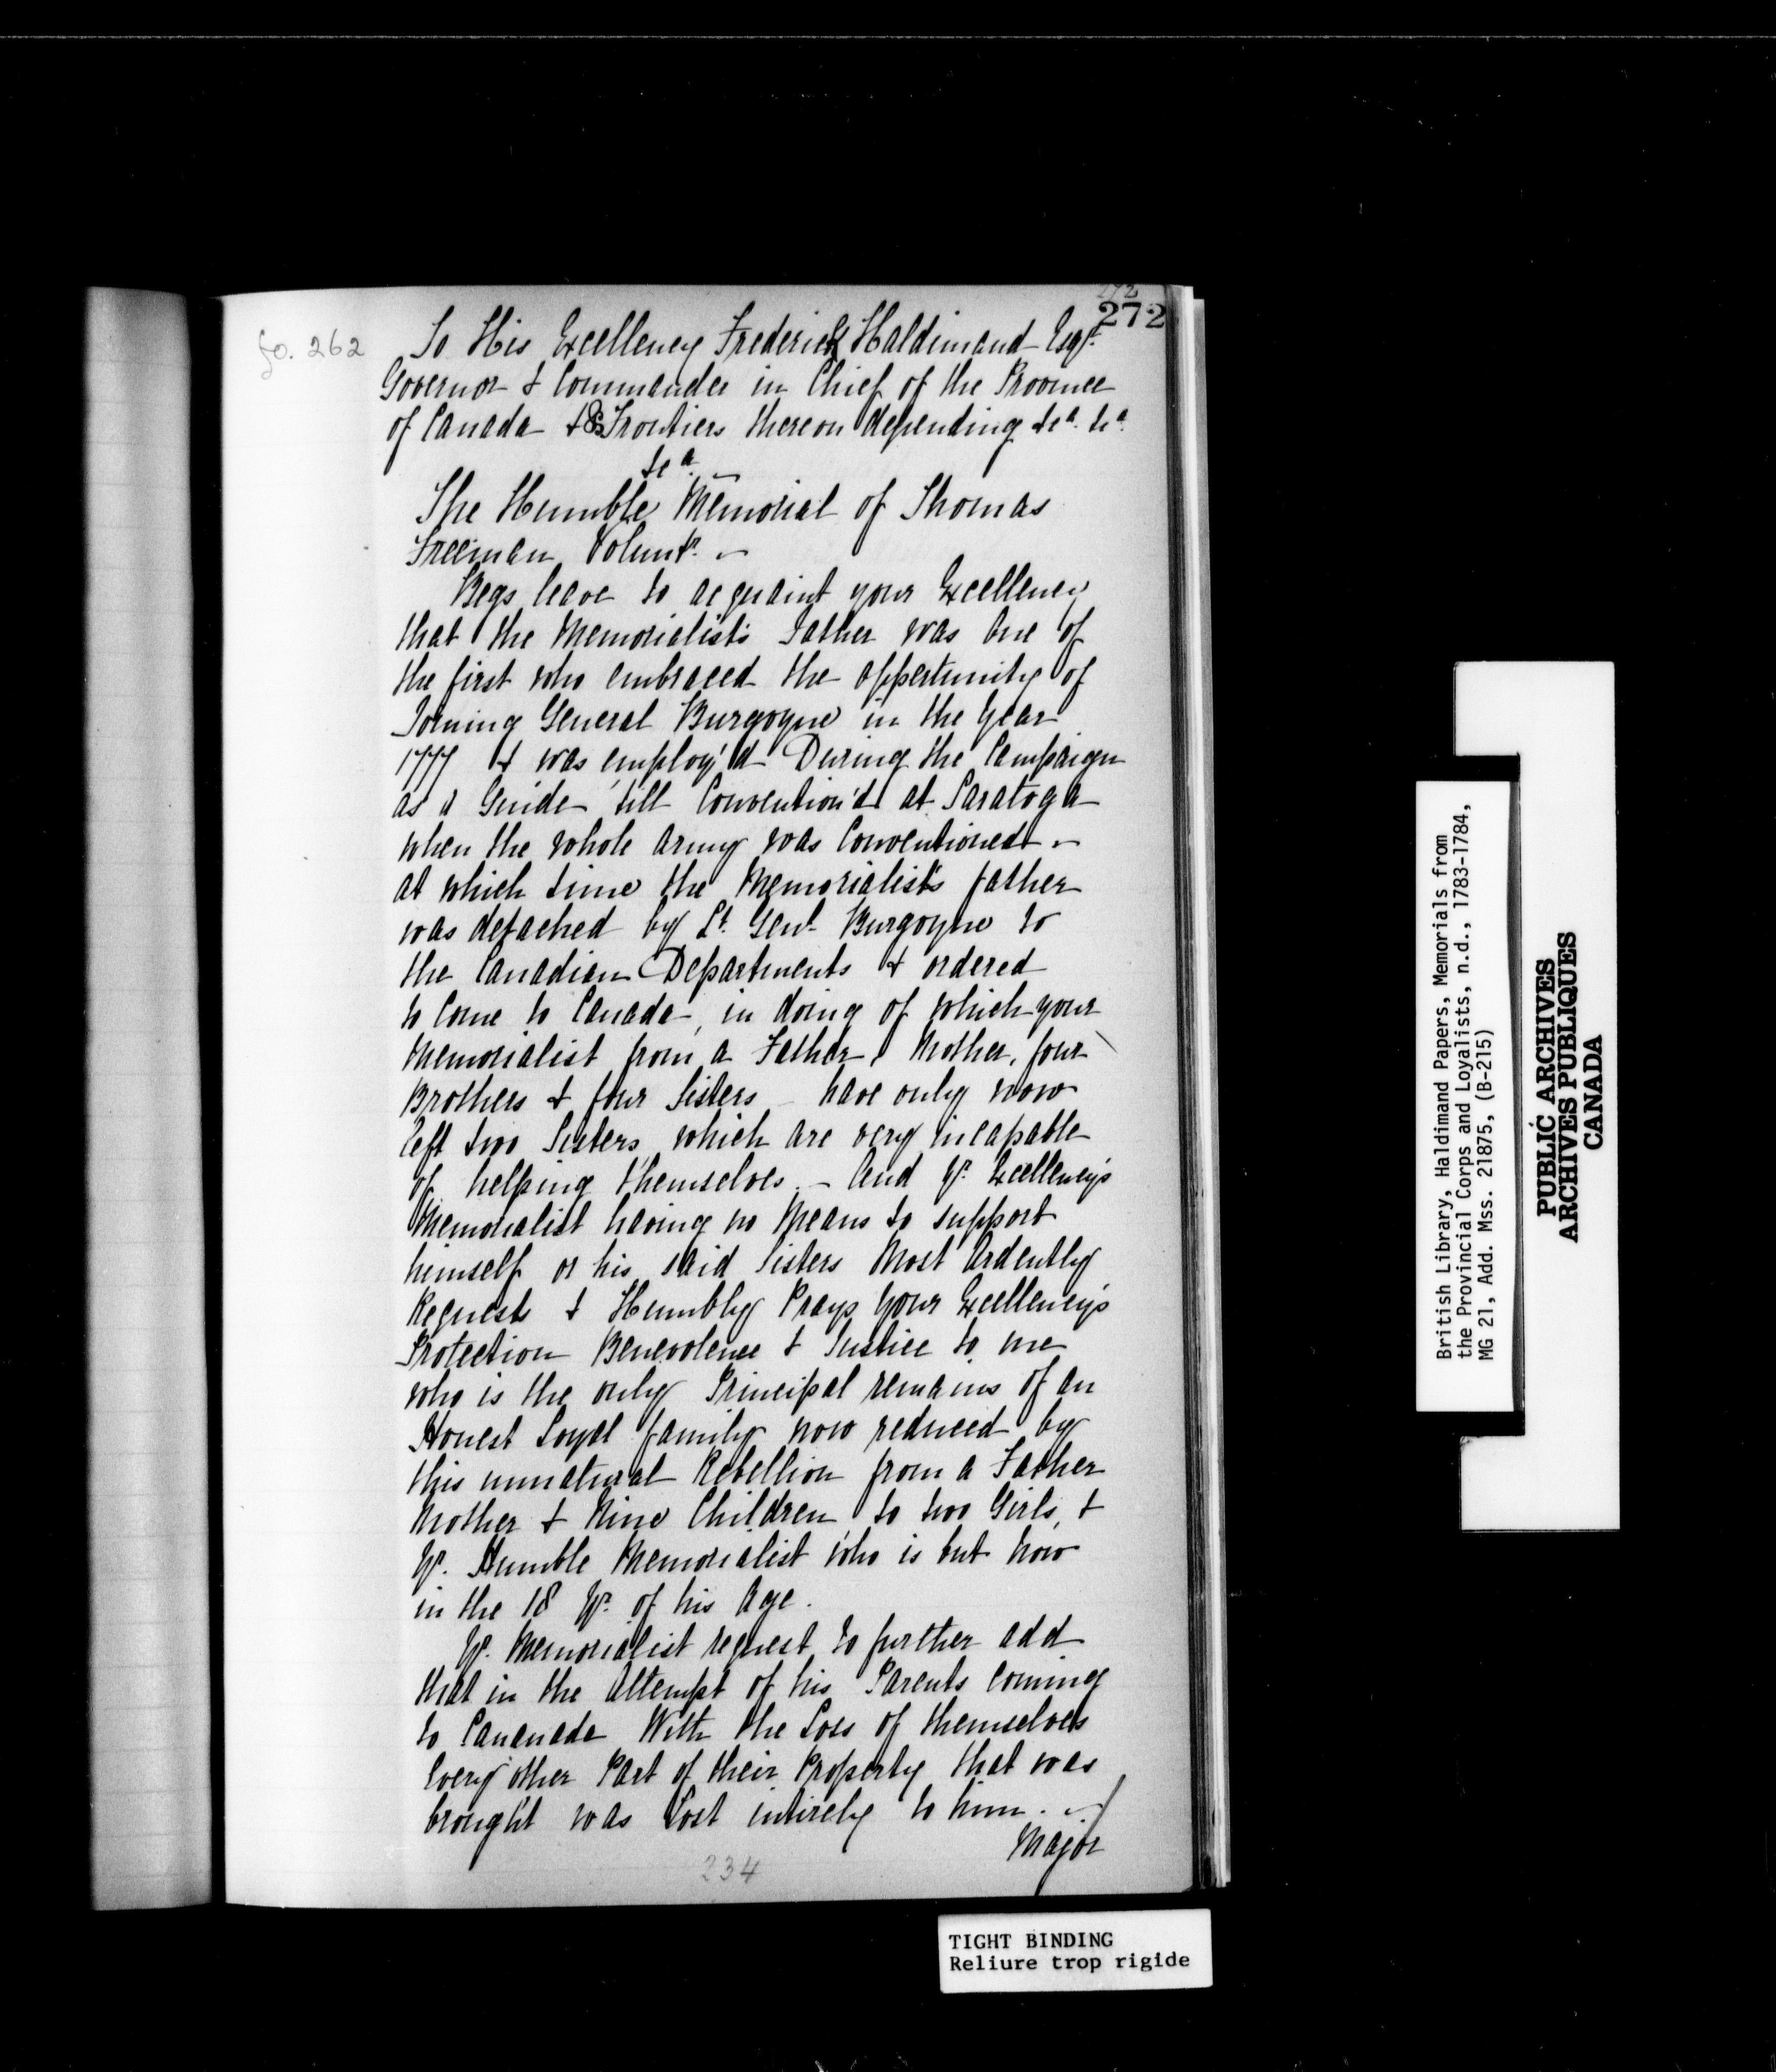 272
272
fo. 262
To His Excellency Frederick Haldimand Esqr.
Governor & Commander in Chief of the Province
of Canada & Frontiers thereon depending &ca. &ca.
&ca.
The Humble Memorial of Thomas
Freeman Voluntr.
Begs leave to acquaint your Excellency
that the Memorialist's Father was One of
the first who embraced the oppertunity of
Joining General Burgoyne in the Year
1777 & was employ'd During the Campaign
as a Guide 'till Convention'd at Saratoga
when the whole Army was Conventioned -
at which time the Memorialist's father
was detached by Lt. Genl. Burgoyne to
the Canadian Departments & ordered
to Come to Canada, in doing of which your
Memorialist from a Father, Mother, four
Brothers & four Sisters - have only now
left two Sisters which are very incapable
of helping themselves. - And Yr. Excellency's
Memorialist having no Means to support
himself or his said Sisters Most Ardently
Requests & Humbly Prays Your Excellency's
Protection Benevolence & Justice to me
who is the only Principal remains of an
Honest Loyal family now reduced by
this unnatural Rebellion from a Father
Mother & Nine Children to two Girls, &
Yr. Humble Memorialist who is but now
in the 18 Yr. of his Age.
Yr. Memorialist request to further add
that in the Attempt of his Parents coming
to Cananada With the Loss of themselves
Every other Part of their Property that was
brought was Lost intirely to him. -
Major
234
British Library, Haldimand Papers, Memorials from
the Provincial Corps and Loyalists, n.d., 1783-1784,
MG 21, Add. Mss. 21875, (B-215)
PUBLIC ARCHIVES
ARCHIVES PUBLIQUES
CANADA
TIGHT BINDING
Reliure trop rigide